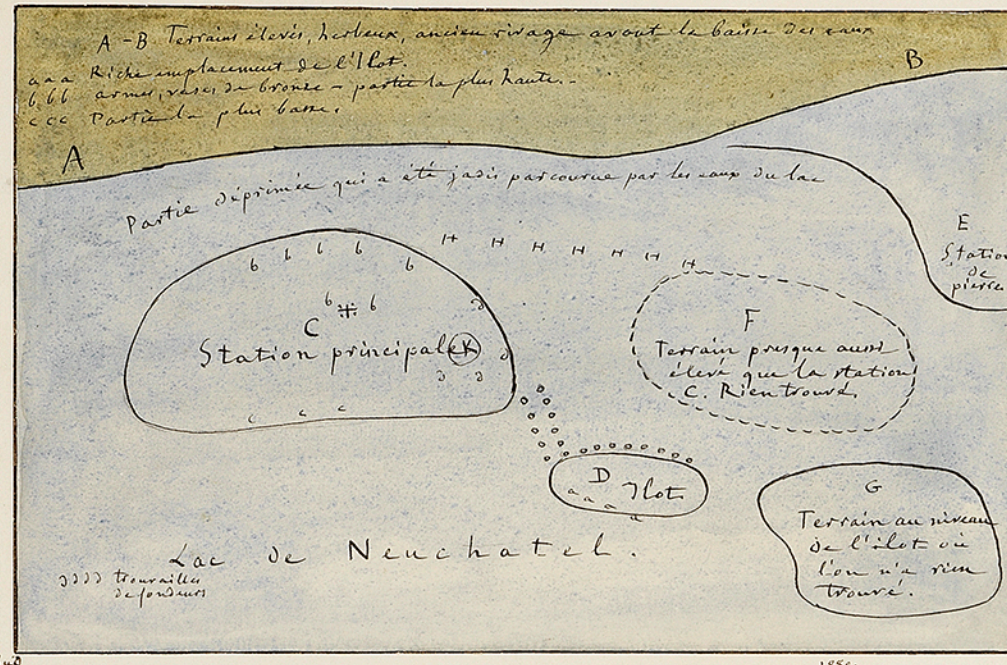 A - B Terrains élevés, herbeux, ancien rivage avant la baisse des eaux
a a a Riche emplacement de l'Ilot.
b b b armes, vases de bronze - partie la plus haute. -
c c c Partie la plus basse.
B
A
Partie déprimée qui a été jadis parcourue par les eaux du lac
E
Station
de
pierre
H H H H H H H
b b b b b
b b
C
Station principale K
c c c
F
Terrain presque aussi
élevé que la station
C. Rien trouvé.
D Ilot
a a a a
G
Terrain au niveau
de l'îlot où
l'on n'a rien
trouvé.
Lac de Neuchatel.
trouvailles
de fondeurs